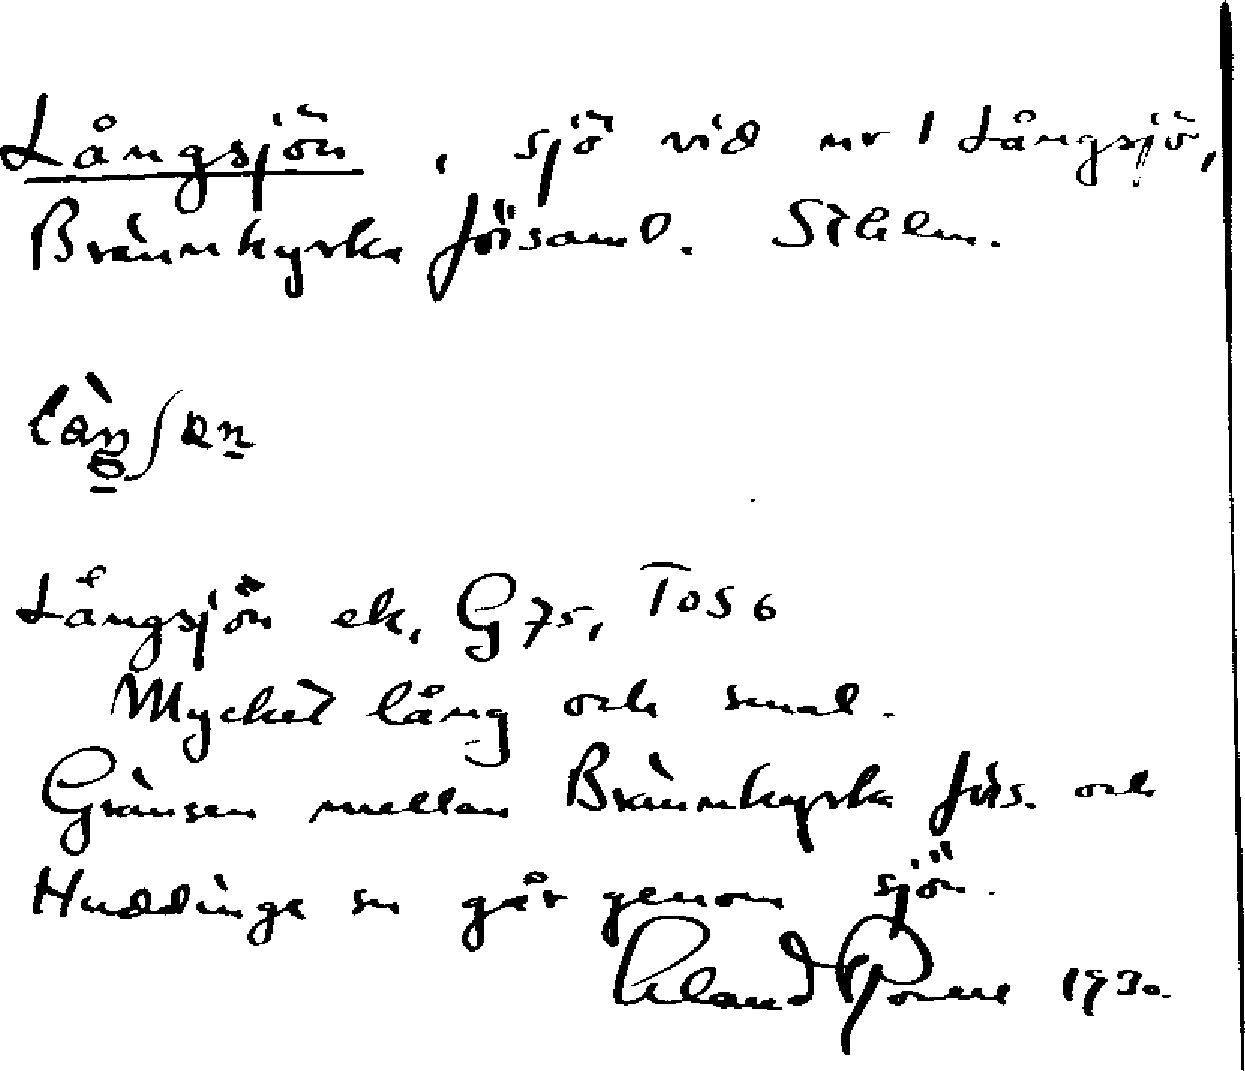 Långsjön, sjö vid nr 1 Långsjö,
Brännkyrka församl. Sthlm.
Långsjön ek. G75, Tos 6
Mycket lång och smal.
Gränsen mellan Brännkyrka förs. och
Huddinge sn går genom sjön.
1930.